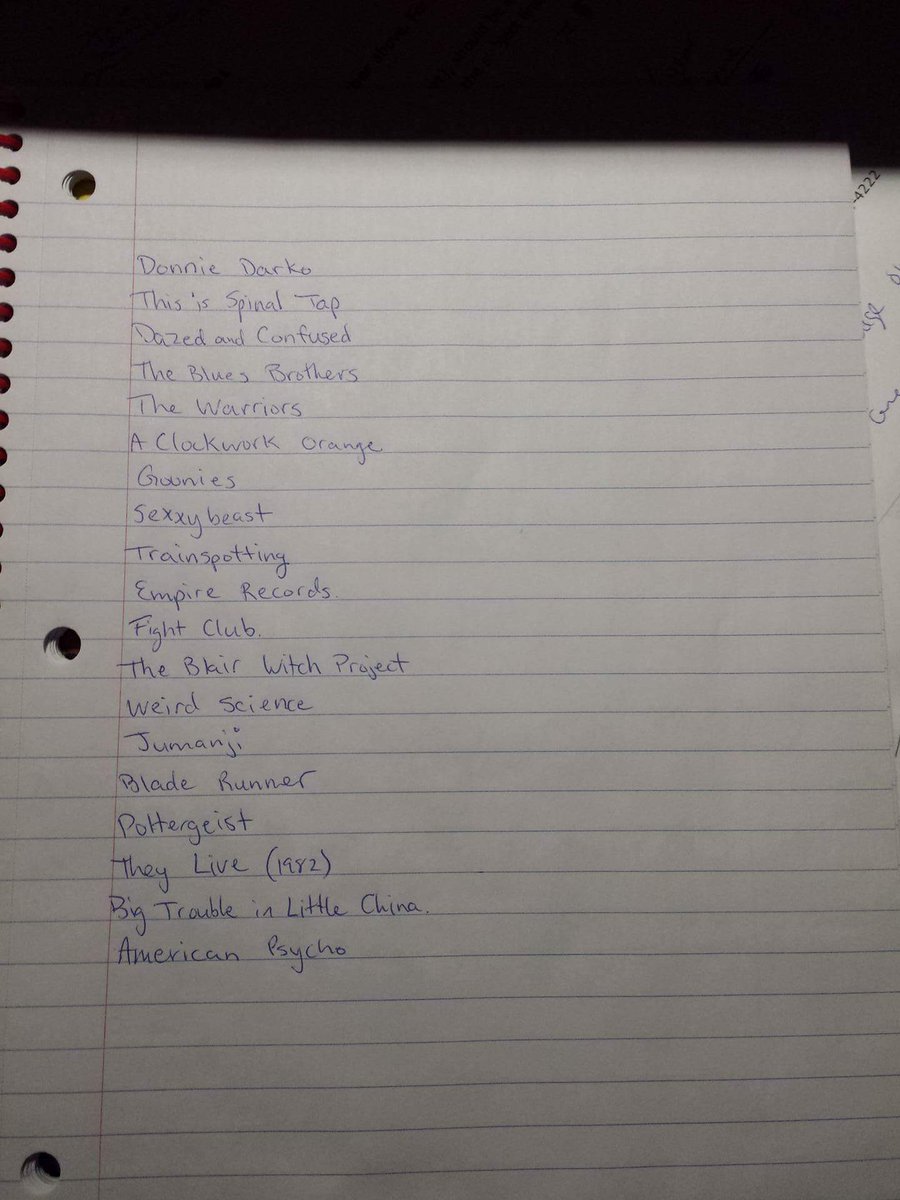 Donnie Darko
This is Spinal Tap
Dazed and Confused
The Blues Brothers
The Warriors
A Clockwork Orange
Goonies
Sexxybeast
Trainspotting
Empire Records.
Fight Club.
The Blair Witch Project
Weird Science
Jumanji
Blade Runner
Poltergeist
They Live (1982)
Big Trouble in Little China.
American Psycho
-4222